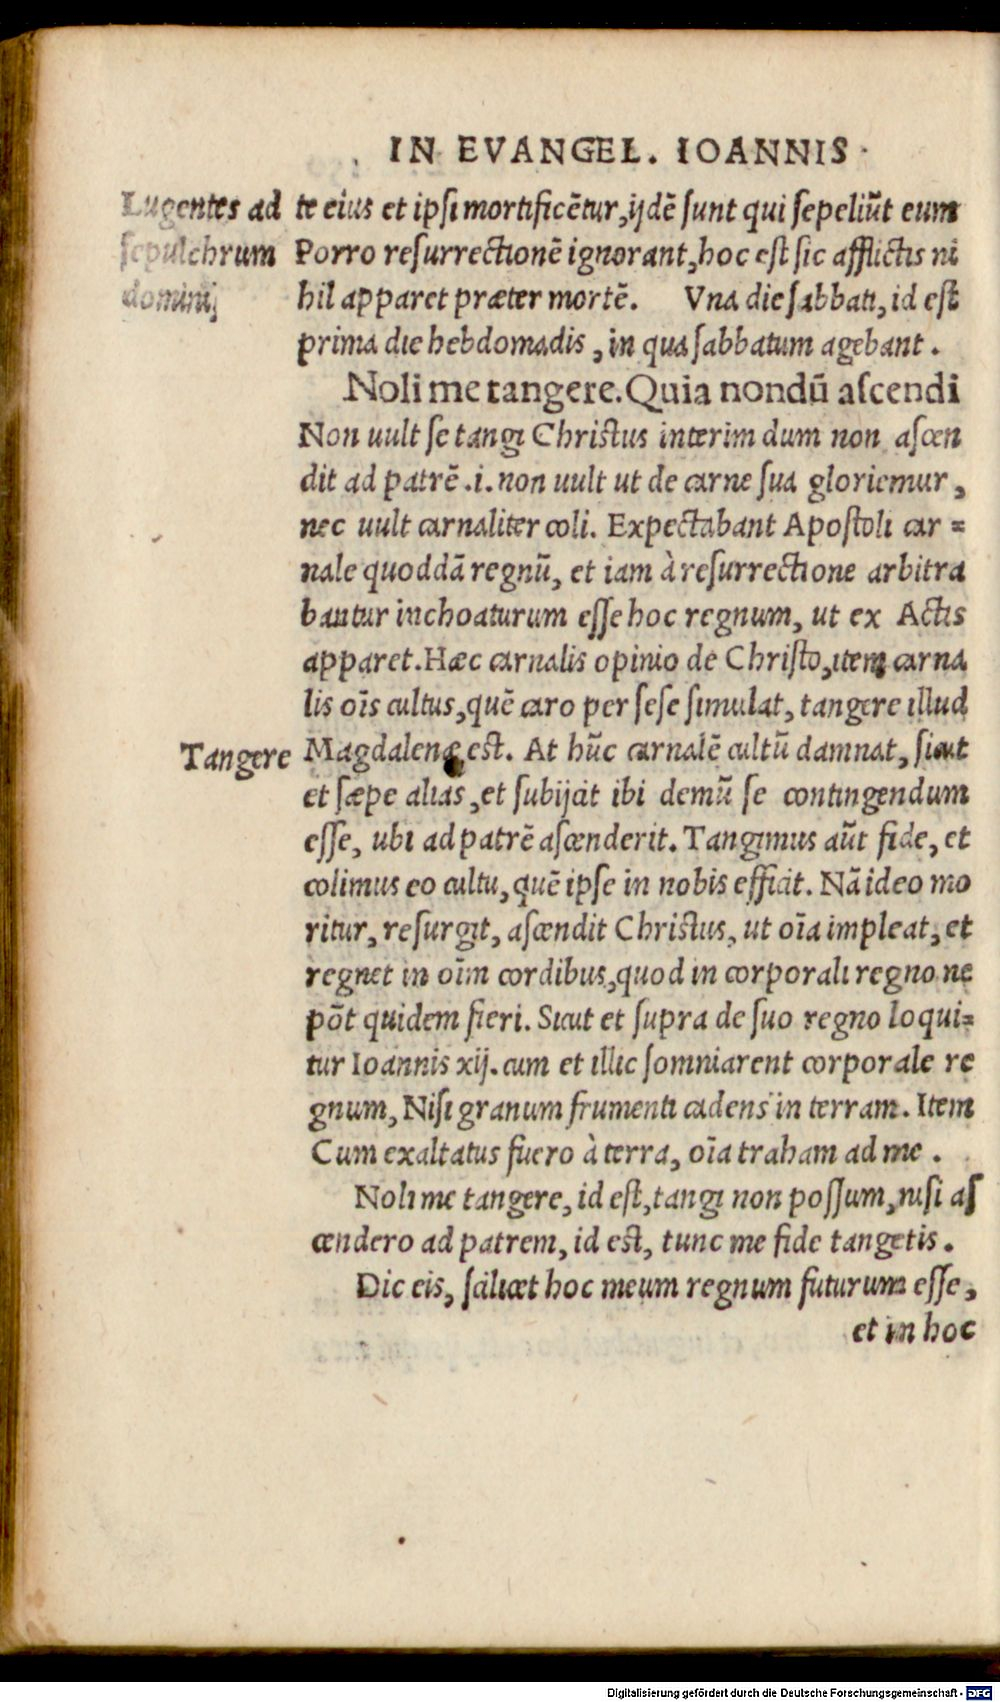 IN EVANGEL. IOANNIS
Lugentes ad
sepulchrum
domini
te eius et ipsi mortificētur, ijdē sunt qui sepeliūt eum
Porro resurrectionē ignorant, hoc est sic afflictis ni
hil apparet præter mortē. Vna die sabbati, id est
prima die hebdomadis, in qua sabbatum agebant.
Noli me tangere. Quia nondū ascendi
Non uult se tangi Christus interim dum non ascen
dit ad patrē .i. non uult ut de carne sua gloriemur,
nec uult carnaliter coli. Expectabant Apostoli car=
nale quoddā regnū, et iam à resurrectione arbitra
bantur inchoaturum esse hoc regnum, ut ex Actis
apparet. Hæc carnalis opinio de Christo, item carna
lis oīs cultus, quē caro per sese simulat, tangere illud
Tangere
Magdalenæ est. At hūc carnalē cultū damnat, sicut
et sæpe alias, et subijcit ibi demū se contingendum
esse, ubi ad patrē ascenderit. Tangimus aūt fide, et
colimus eo cultu, quē ipse in nobis efficit. Nā ideo mo
ritur, resurgit, ascendit Christus, ut oīa impleat, et
regnet in oīm cordibus, quod in corporali regno ne
pōt quidem fieri. Sicut et supra de suo regno loqui=
tur Ioannis xij. cum et illic somniarent corporale re
gnum, Nisi granum frumenti cadens in terram. Item
Cum exaltatus fuero à terra, oīa traham ad me.
Noli me tangere, id est, tangi non possum, nisi as
cendero ad patrem, id est, tunc me fide tangetis.
Dic eis, scilicet hoc meum regnum futurum esse,
et in hoc
Digitalisierung gefördert durch die Deutsche Forschungsgemeinschaft - DFG